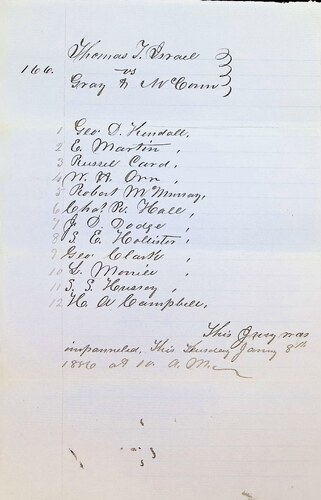 Thomas T. Israel
166. vs
Gray & McCann
1 Geo D. Kendall,
2 E. Martin,
3 Russel Card,
4 W. H. Orn,
5 Robert McMurray,
6 Chas. R. Hall,
7 J. D. Dodge,
8 S. E. Hollister,
9 Geo Clark,
10 L. Morrill,
11 S. S. Hussey,
12 H. A Campbell,
This Jury was
impanneled, This Tuesday Jany 8th
at 10 A. M.